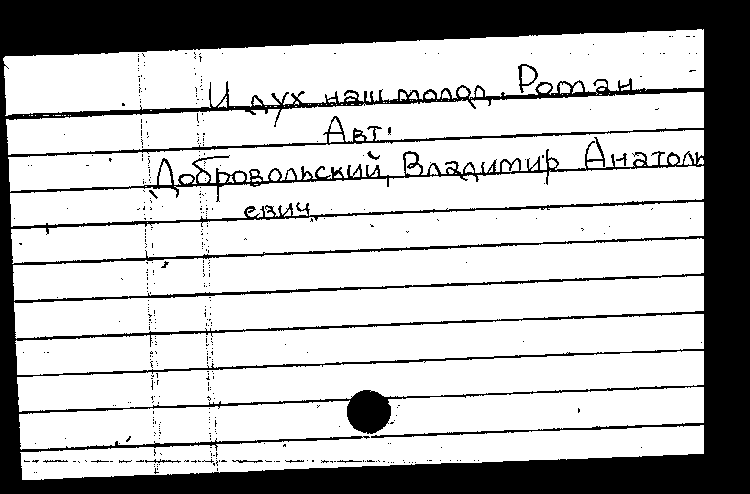 И дух наш молод. Роман
Авт:
Добровольский, Владимир Анатоль
евич.